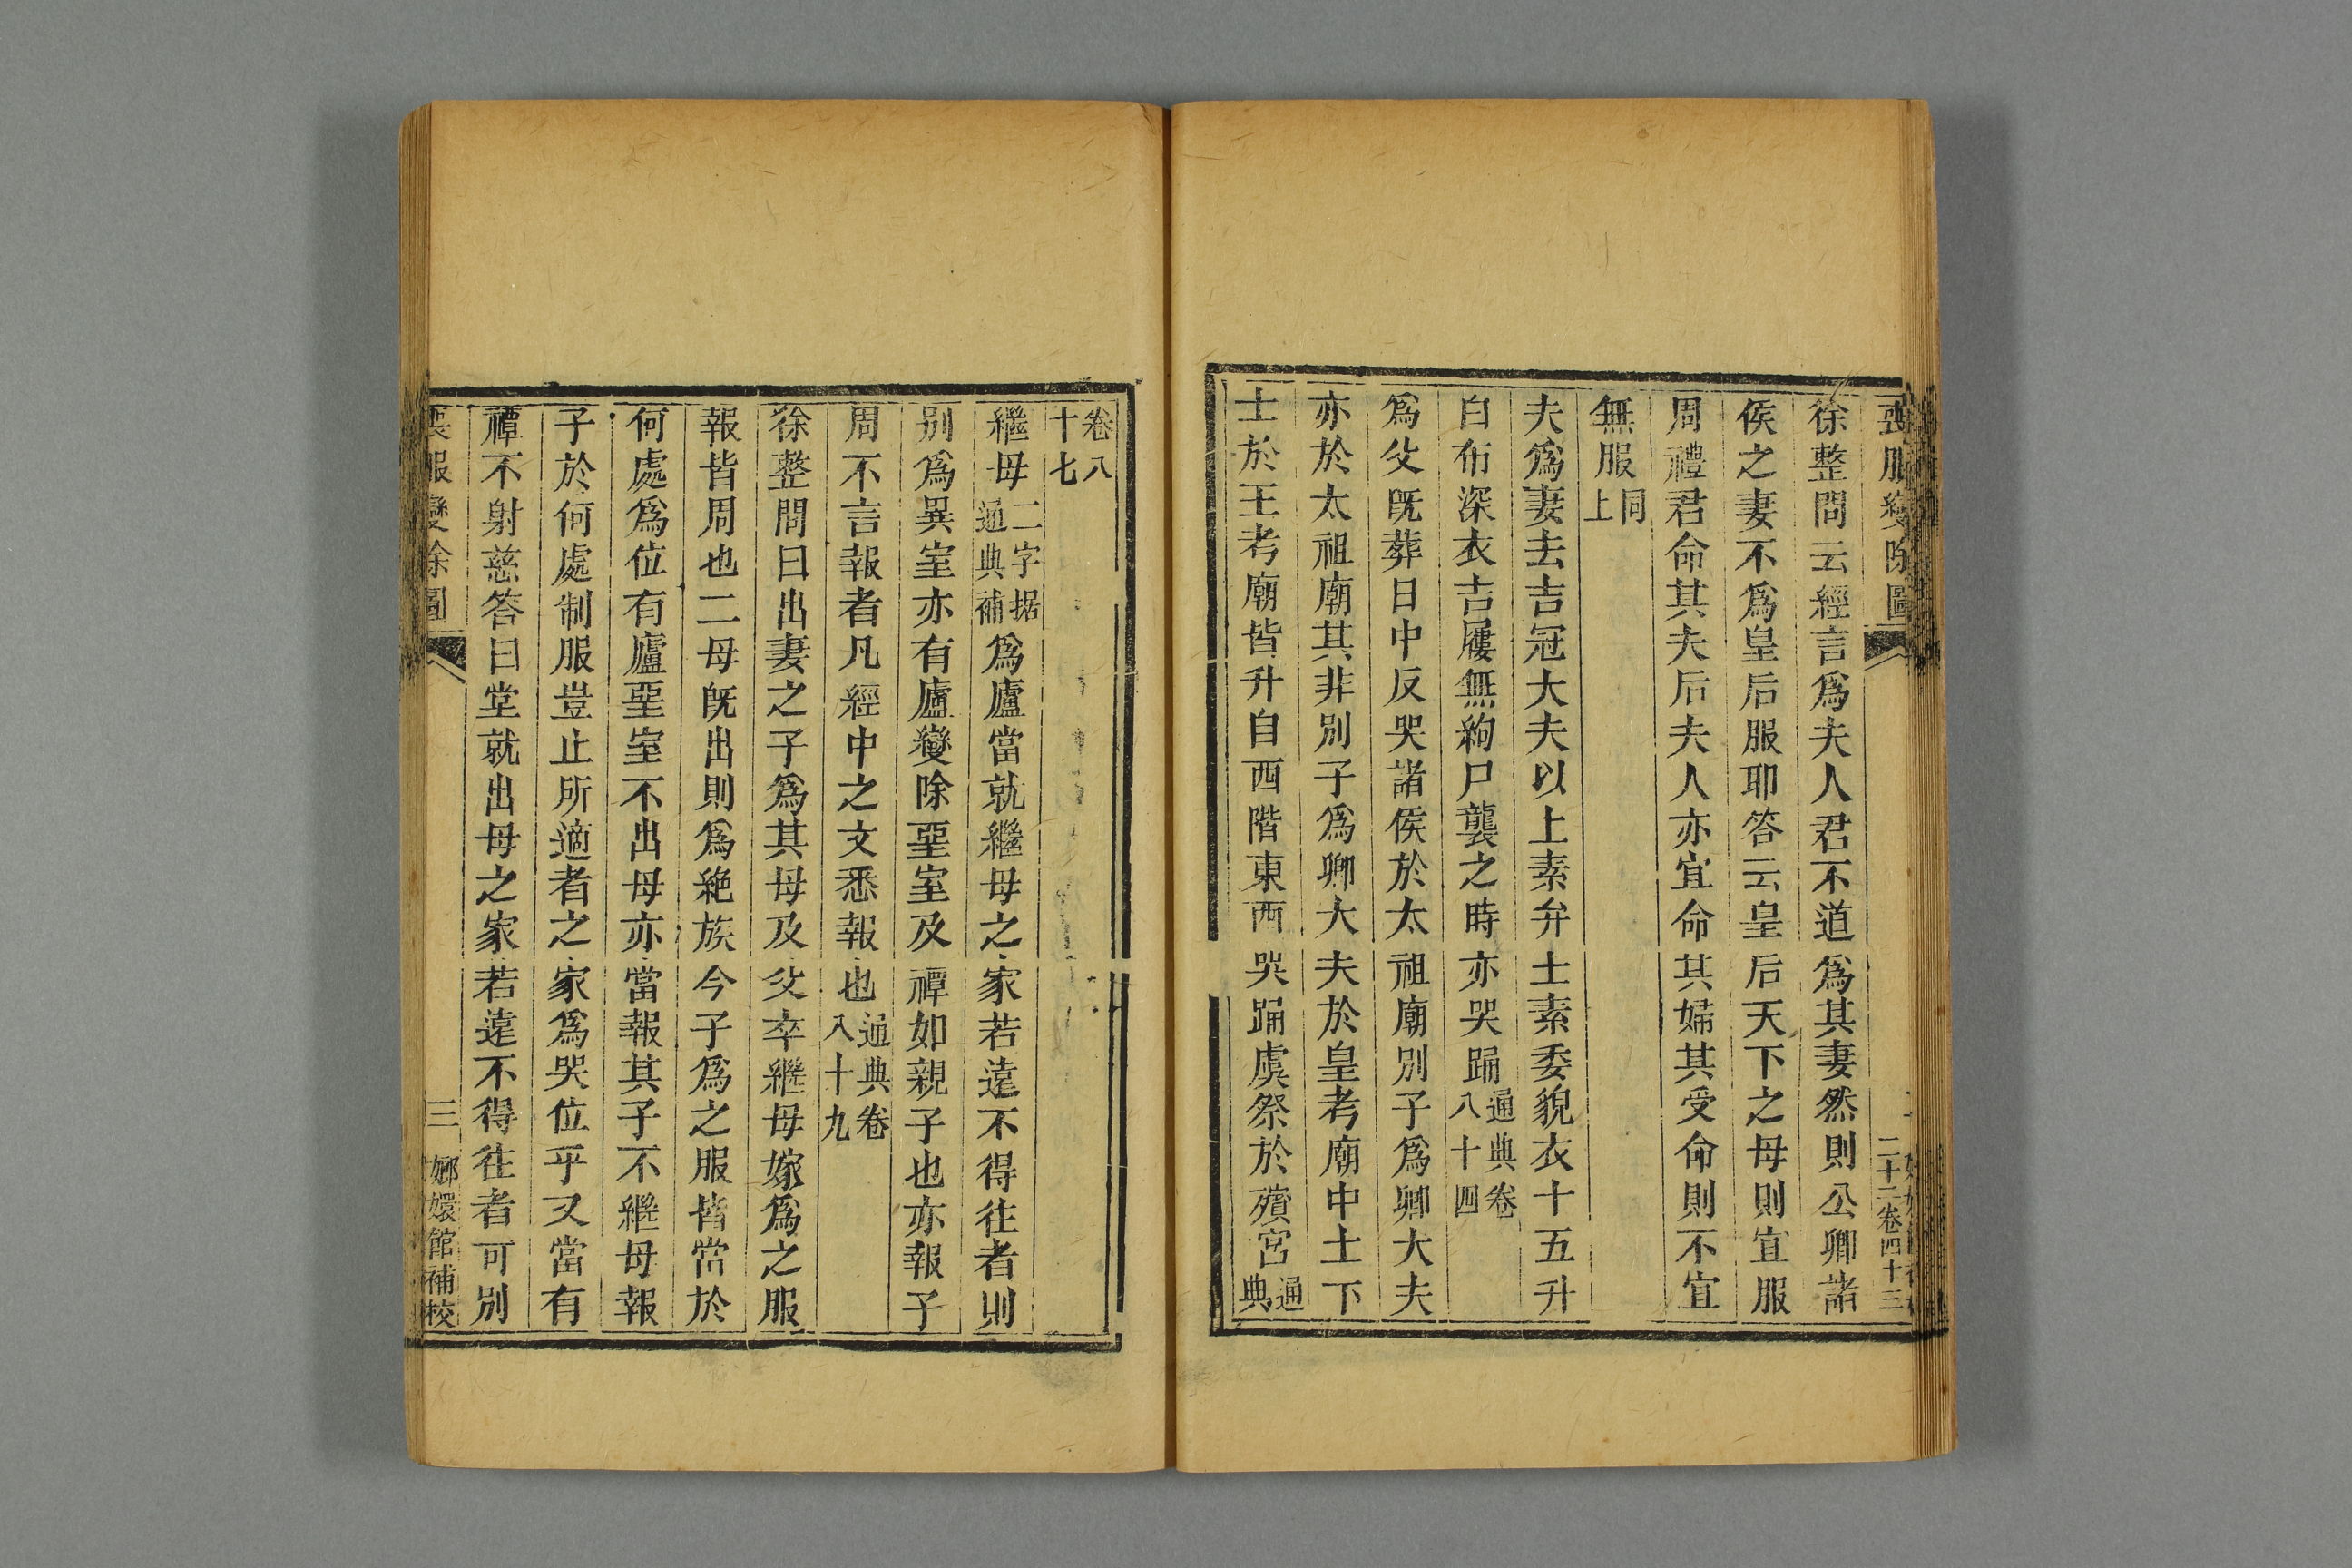 喪服變除圖
二十二卷四十三
徐整問云經言爲夫人君不道爲其妻然則公卿諸
侯之妻不爲皇后服耶答云皇后天下之母則宜服
周禮君命其夫后夫人亦宜命其婦其受命則不宜
無服同上
夫爲妻去吉冠大夫以上素弁士素委貌衣十五升
白布深衣吉屨無絇尸襲之時亦哭踊通典卷八十四
爲父既葬日中反哭諸侯於太祖廟別子爲卿大夫
亦於太祖廟其非別子爲卿大夫於皇考廟中士下
士於王考廟皆升自西階東西哭踊虞祭於殯宮通典
卷八十七
繼母二字据通典補爲廬當就繼母之家若遠不得往者則
別爲異室亦有廬變除堊室及禫如親子也亦報子
周不言報者凡經中之文悉報也通典卷八十九
徐整問曰出妻之子爲其母及父卒繼母嫁爲之服
報皆周也二母既出則爲絶族今子爲之服皆當於
何處爲位有廬堊室不出母亦當報其子不繼母報
子於何處制服豈止所適者之家爲哭位乎又當有
禫不射慈答曰堂就出母之家若遠不得往者可別
喪服變除圖
三
嫏嬛館補校